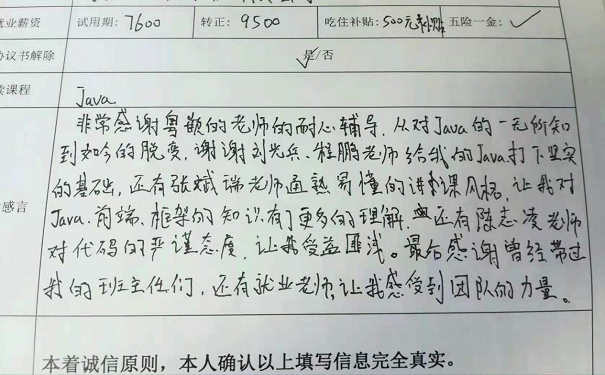 就业薪资 试用期:7600 转正:9500 吃住补贴:500元补贴 五险一金:✓
协议书解除 是/否
读课程 Java
非常感谢粤嵌的老师的耐心辅导,从对Java的一无所知
到如今的脱变,谢谢刘光兵、程鹏老师给我的Java打下坚实
的基础,还有张斌瑞老师通熟易懂的讲课风格,让我对
感言 Java、前端、框架的知识有了更多的理解,还有陈志凌老师
对代码的严谨态度,让我受益匪浅。最后感谢曾经带过
我的班主任们,还有就业老师,让我感受到团队的力量。
本着诚信原则,本人确认以上填写信息完全真实。